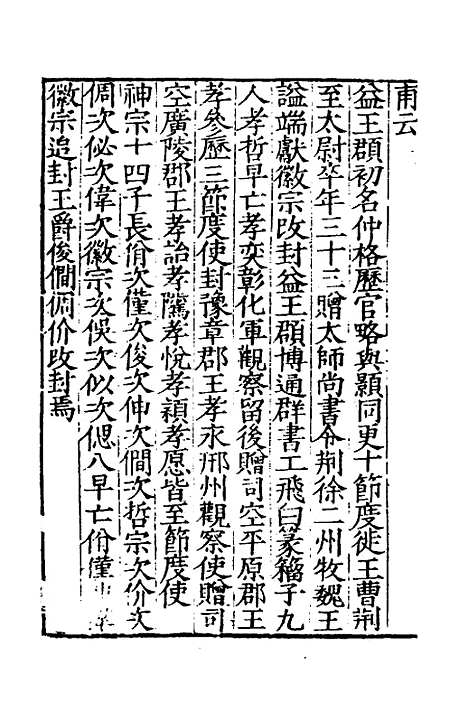 甫云
益王頵初名仲格歷官略與顥同更十節度徙王曹荆
至太尉卒年三十三贈太師尚書令荆徐二州牧魏王
謚端獻徽宗改封益王頵博通群書工飛白篆籀子九
人孝哲早亡孝奕彰化軍觀察留後贈司空平原郡王
孝參歷三節度使封豫章郡王孝永邢州觀察使贈司
空廣陵郡王孝詒孝騭孝悅孝潁孝愿皆至節度使
神宗十四子長佾次僅次俊次伸次僩次哲宗次价次
倜次佖次偉次徽宗次俁次似次偲八早亡佾僅
徽宗追封王爵俊僩倜价改封焉